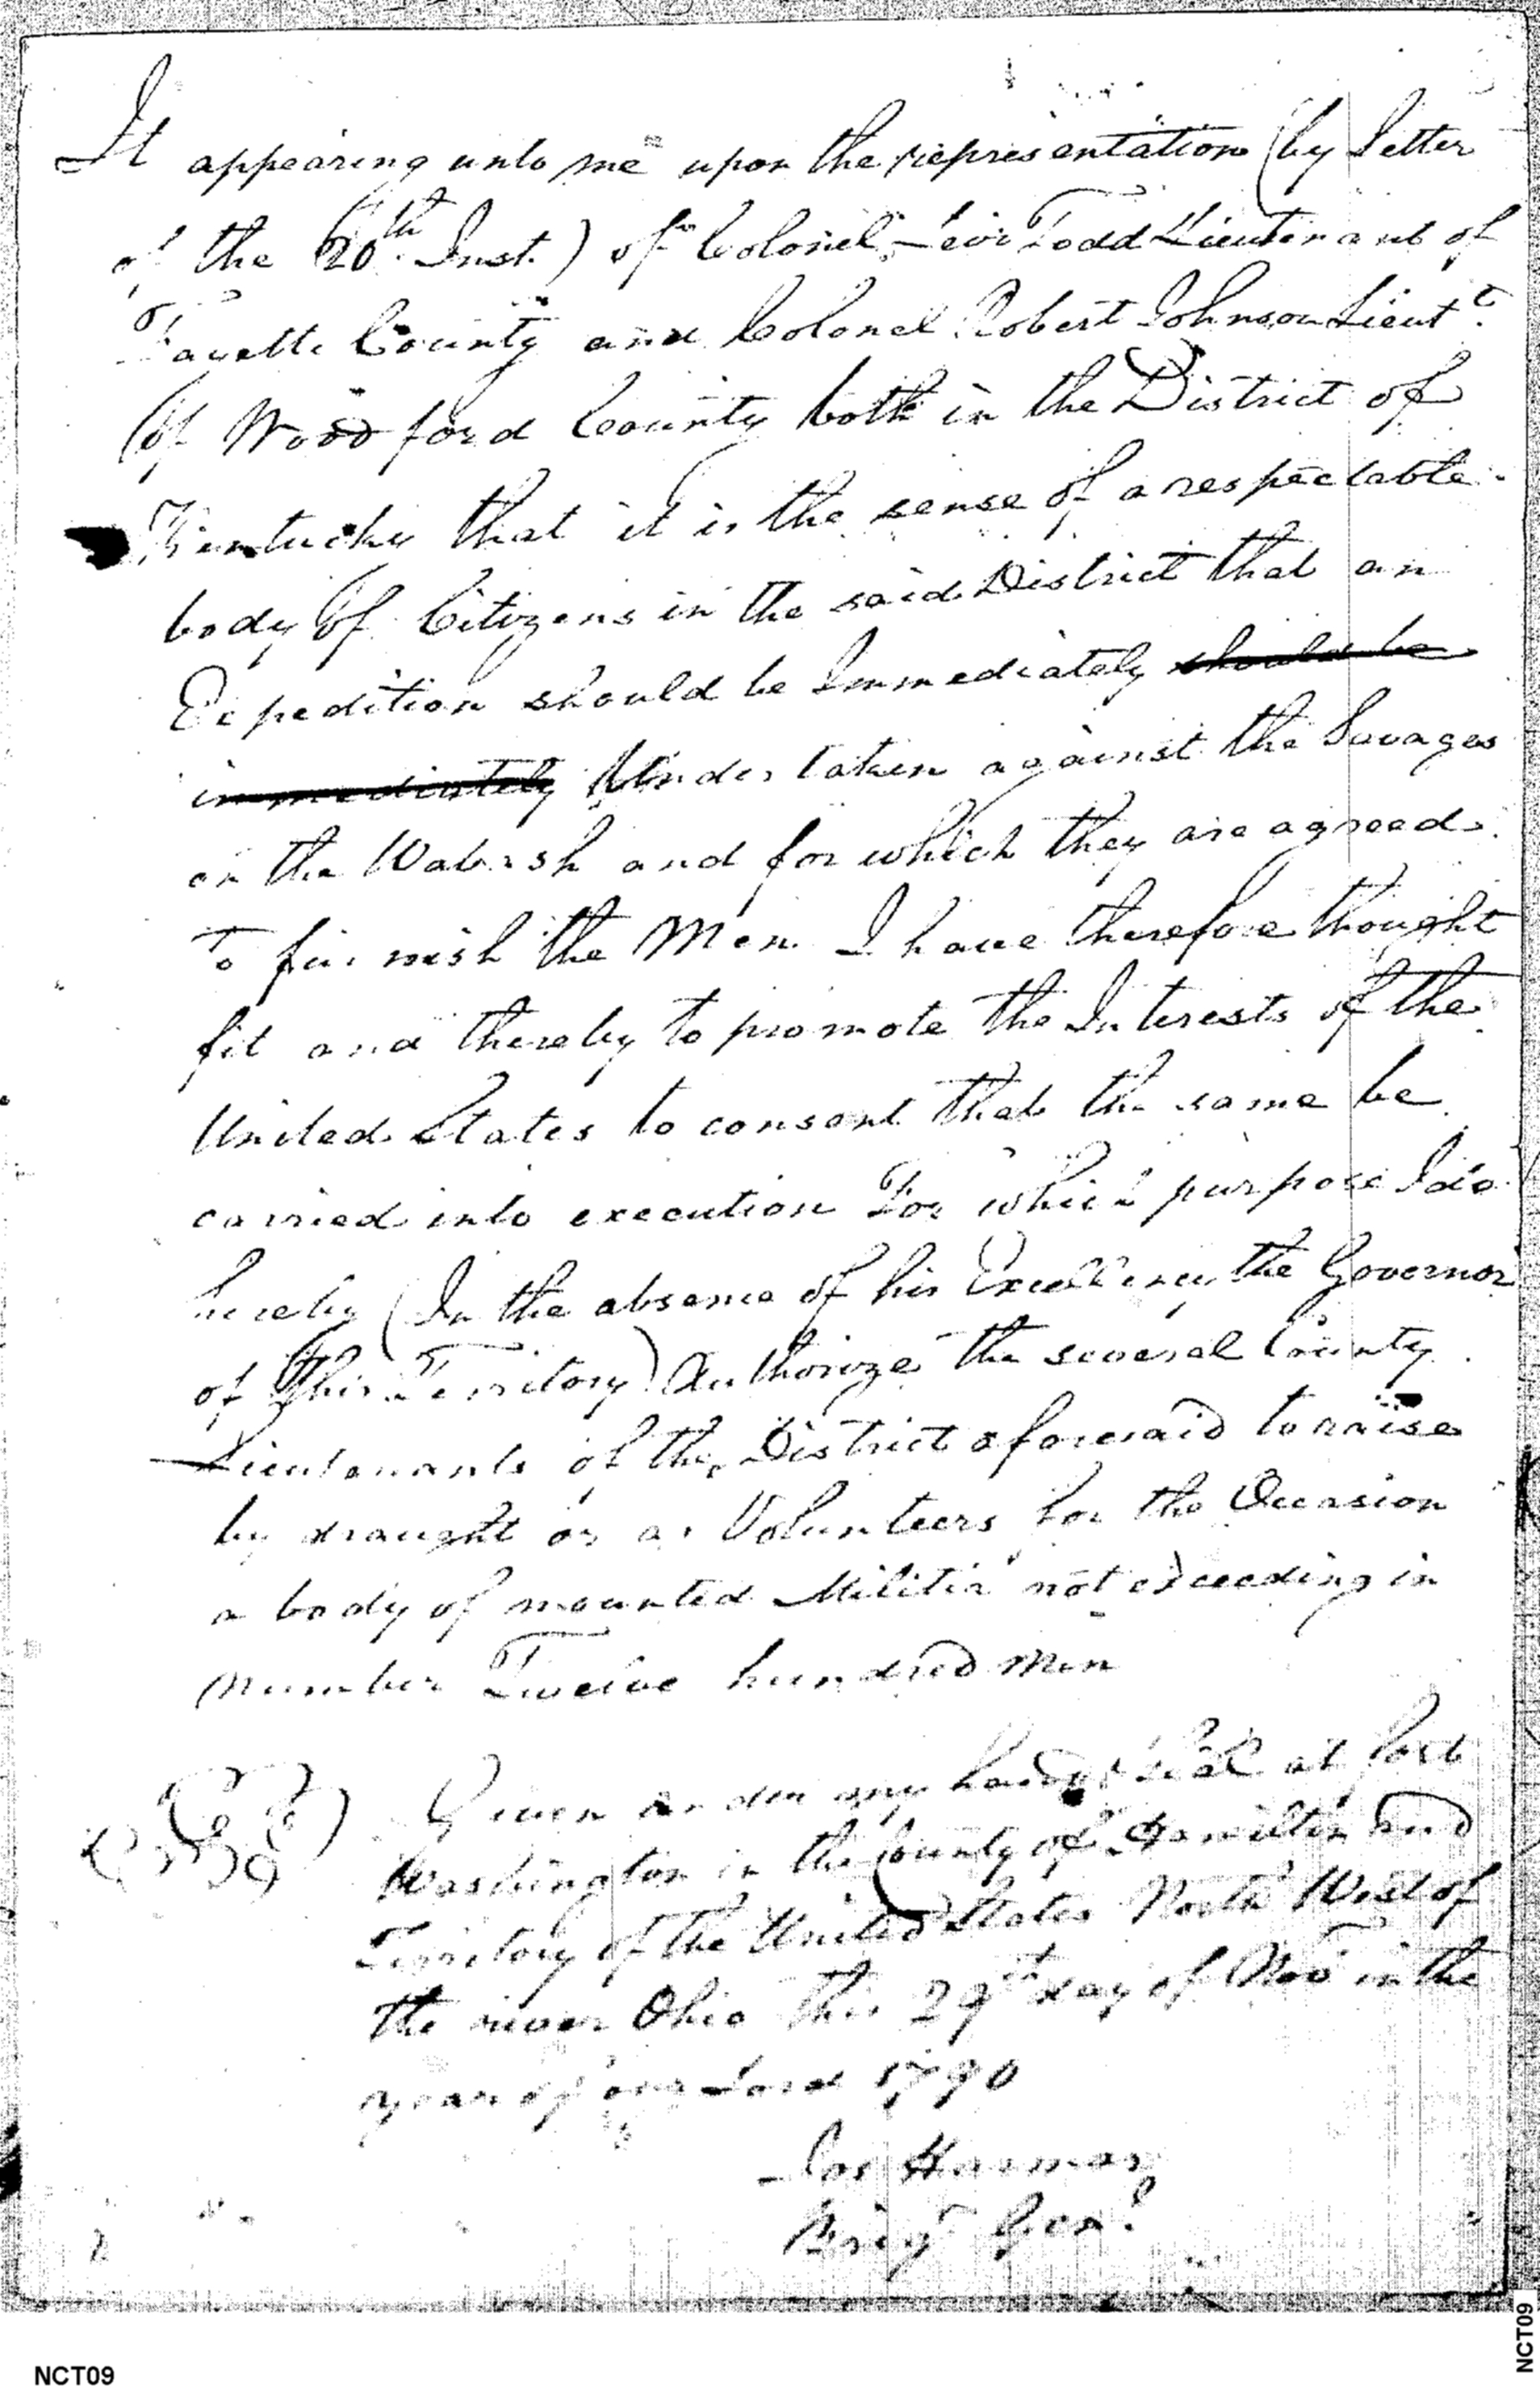 It appearing unto me upon the representation (by Letter
of the 20th Inst.) of Colonel Levi Todd Lieutenant of
Fayette County and Colonel Robert Johnson Lieutt.
of Woodford County both in the District of
Kentucky that it is the sense of a respectable
body of Citizens in the said District that an
Expedition should be Immediately should be
immediately Undertaken against the Savages
on the Wabash and for which they are agreed
To furnish the Men I have therefore thought
fit and thereby to promote the Interests of the
United States to consent that the same be
carried into execution For which purpose I do
hereby (In the absence of his Excellency the Governor
of this Territory) Authorize the several County
Lieutenants of the District aforesaid to raise
by draught or as Volunteers for the Occasion
a body of mounted Militia not exceeding in
number Twelve hundred men
Given under my hand & seal at fort
Washington in the County of Hamilton and
Territory of the United States North West of
the river Ohio this 29th day of Nov in the
year of our Lord 1790
Jos Harmar
Brigr Genl.
NCT09
NCT09